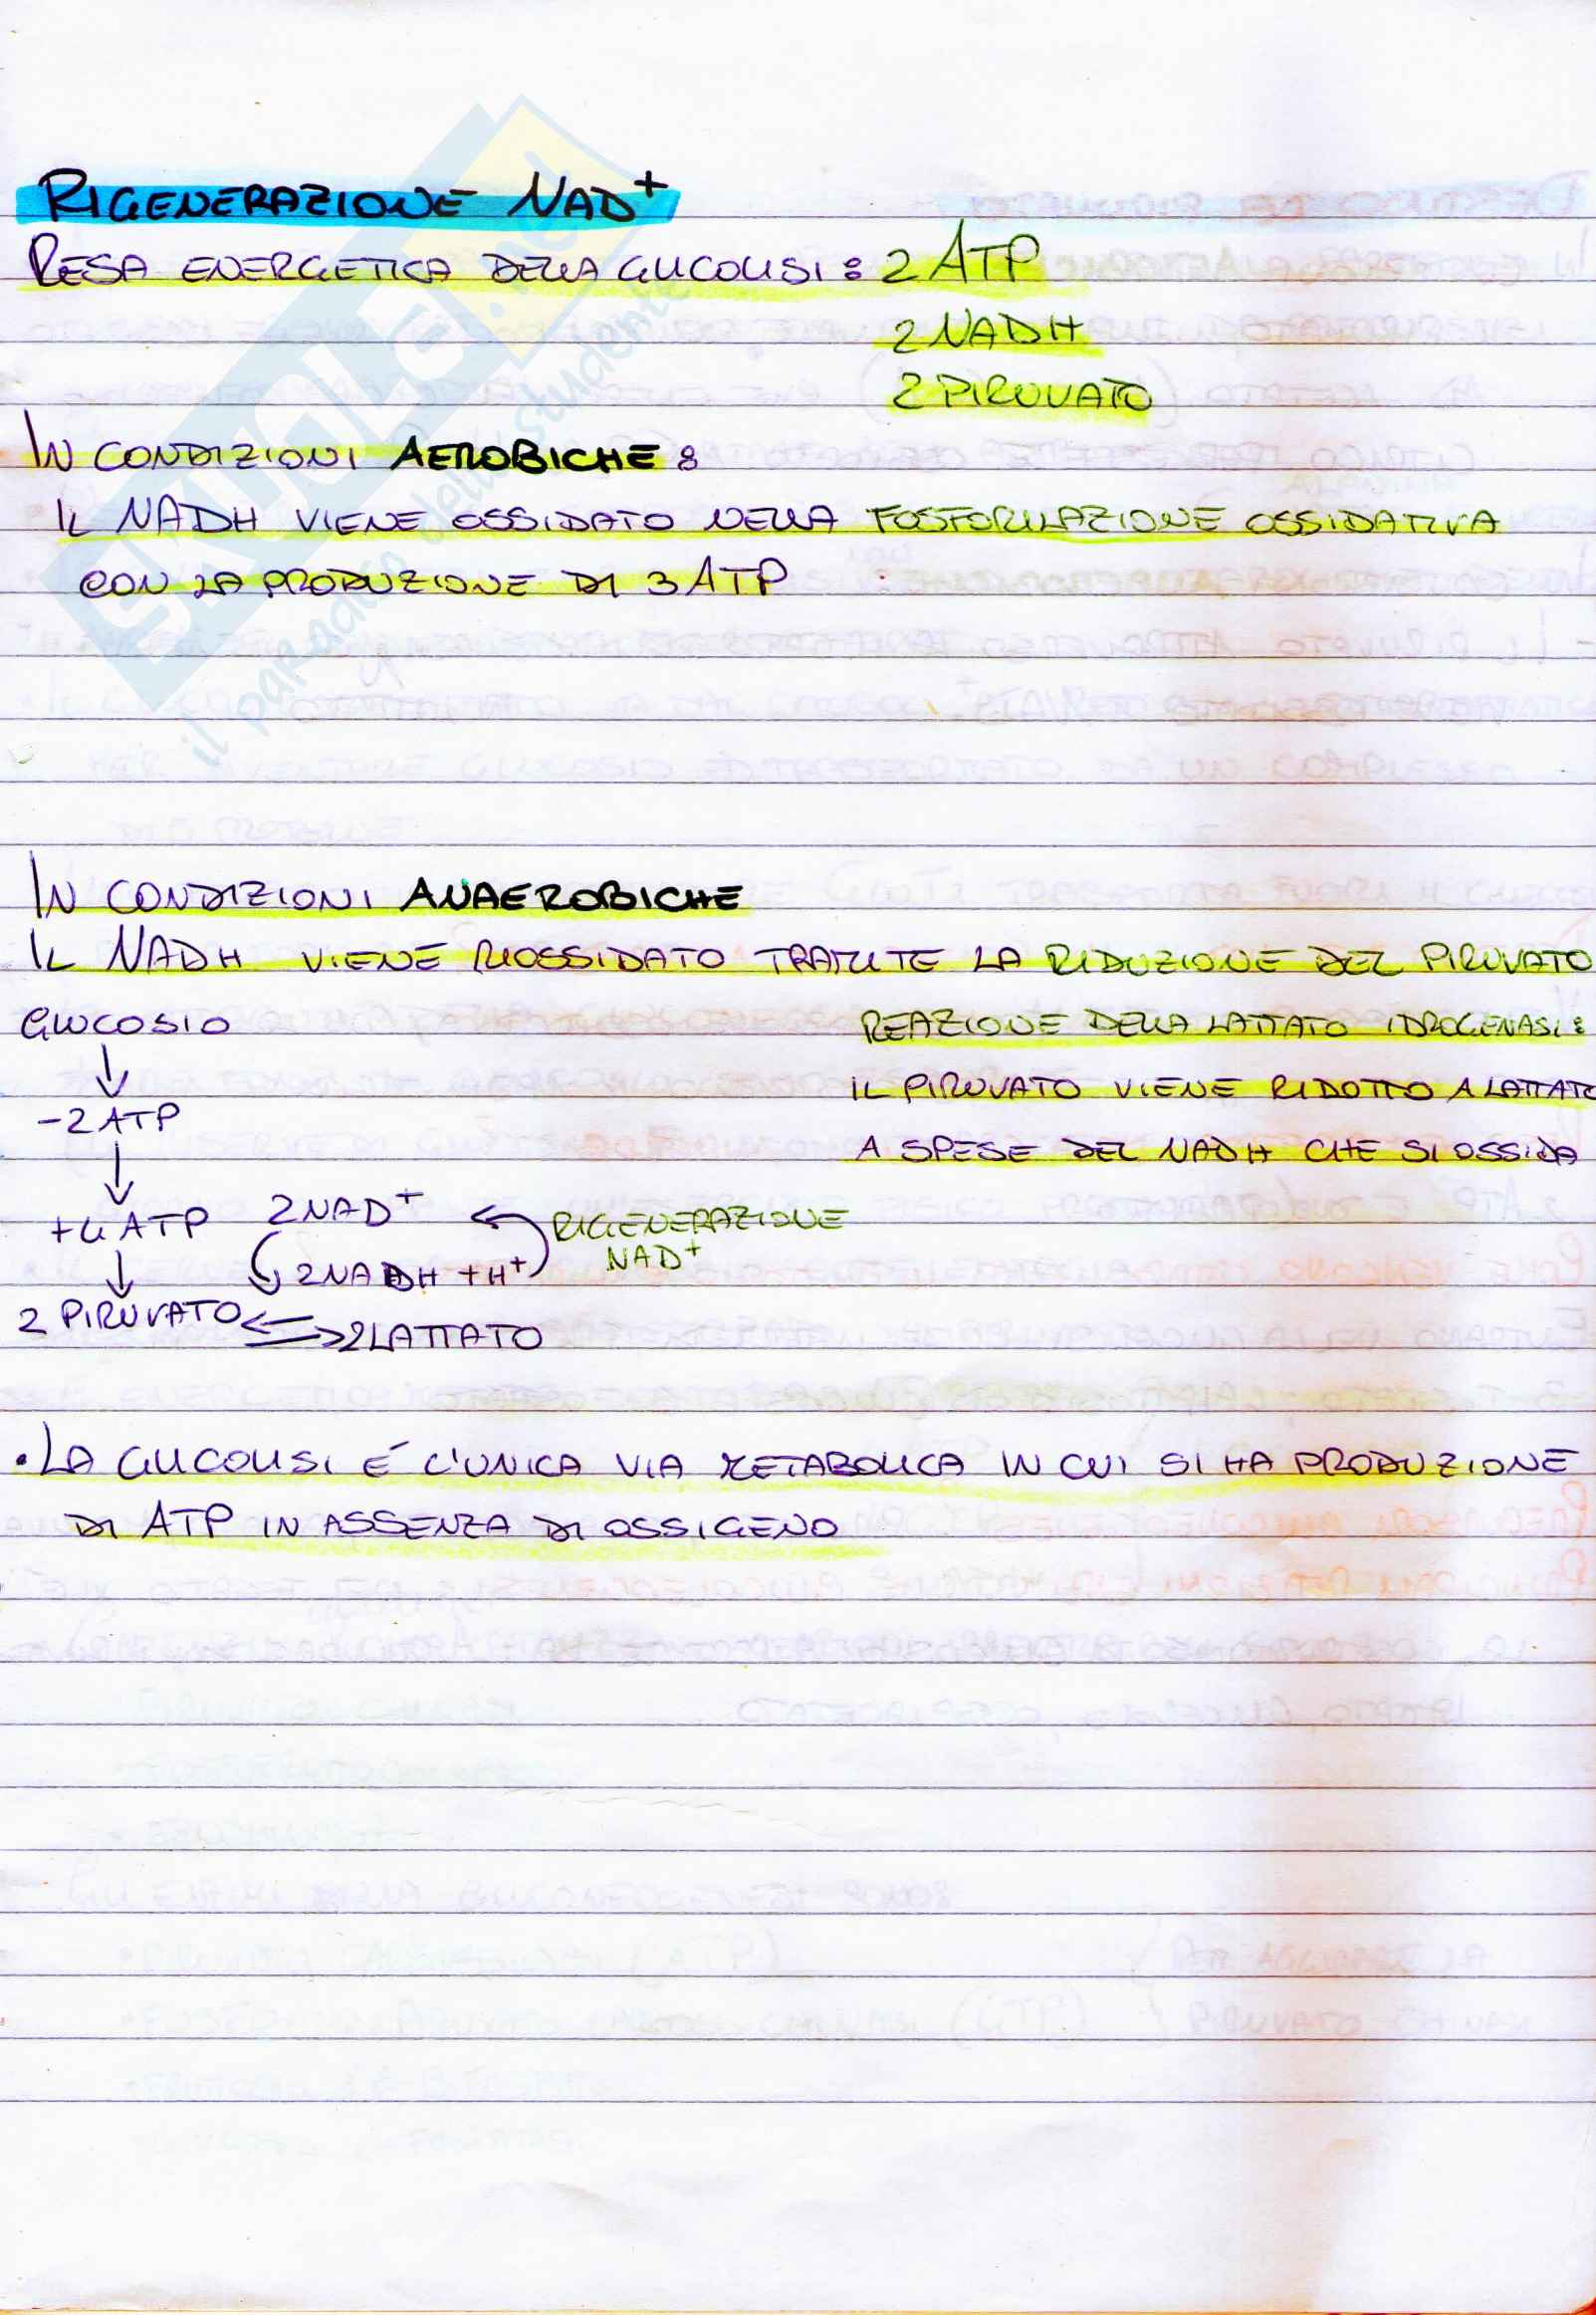 RIGENERAZIONE NAD+
RESA ENERGETICA DELLA GLICOLISI: 2 ATP
2 NADH
2 PIRUVATO
IN CONDIZIONI AEROBICHE:
IL NADH VIENE OSSIDATO NELLA FOSFORILAZIONE OSSIDATIVA
CON LA PRODUZIONE DI 3 ATP
IN CONDIZIONI ANAEROBICHE
IL NADH VIENE RIOSSIDATO TRAMITE LA RIDUZIONE DEL PIRUVATO
GLUCOSIO
REAZIONE DELLA LATTATO IDROGENASI:
↓
IL PIRUVATO VIENE RIDOTTO A LATTATO
-2 ATP
A SPESE DEL NADH CHE SI OSSIDA
↓
+4 ATP 2NAD+ ← RIGENERAZIONE
NAD+
↓ 2NADH + H+
2 PIRUVATO ⇌ 2LATTATO
• LA GLICOLISI É L'UNICA VIA METABOLICA IN CUI SI HA PRODUZIONE
DI ATP IN ASSENZA DI OSSIGENO
SKUOLA.net
il paradiso dello studente